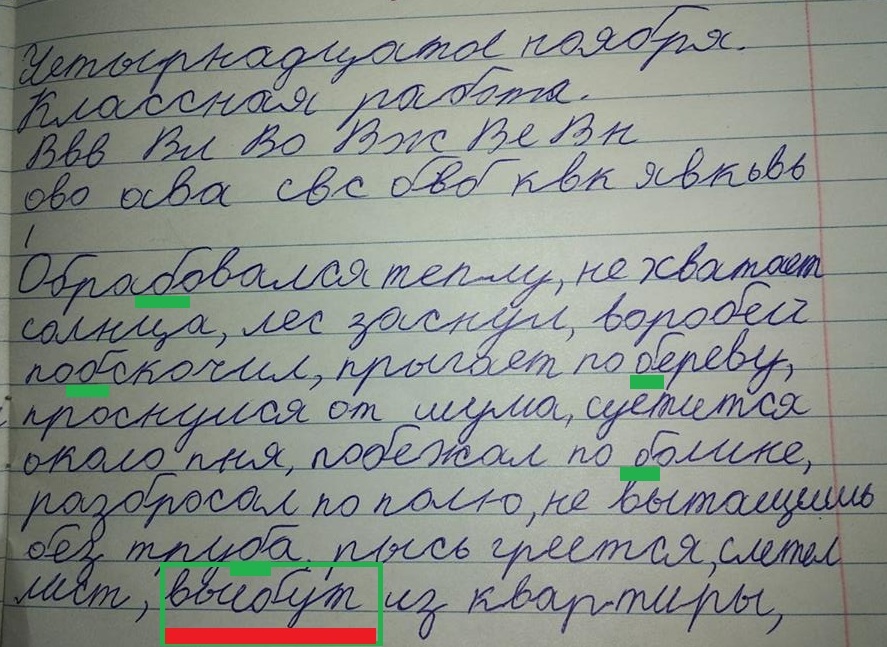 Четырнадцатое ноября.
Классная работа.
Ввв Вл Во Вж Ве Вн
ово ава свс обвоб квк явкьвь
Обрабовался теплу, не хватает
солнца, лес заснул, воробей
пообскочил, прыгает по береву,
проснулся от шума, суетится
около пня, побежал по болине,
разбросал по полю, не вытащишь
без труба, рысь греется, слетел
лист, выебут из квартиры,